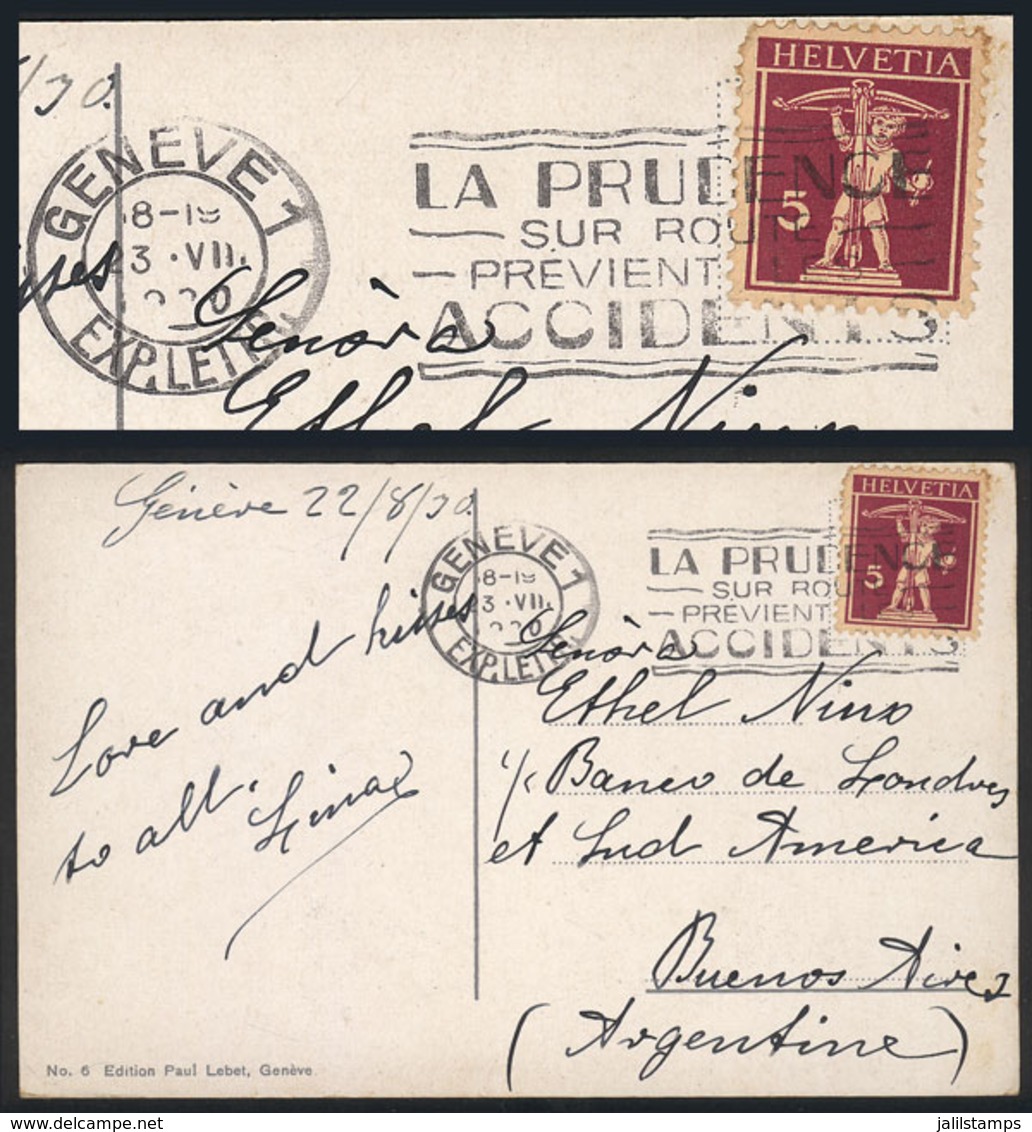 /30.
HELVETIA
5
GENÈVE 1
18-19
23.VIII.
EXP. LETTR.
LA PRUDENCE
SUR ROUTE
PRÉVIENT LES
ACCIDENTS
kisses
Señora
Ethel Nino
Génève 22/8/30.
HELVETIA
5
GENÈVE 1
18-19
23.VIII.
EXP. LETTR.
LA PRUDENCE
SUR ROUTE
PRÉVIENT
ACCIDENTS
Love and kisses
to all.
Lina
Señora
Ethel Nino
c/c Banco de Londres
et Sud America
Buenos Aires
(Argentine)
No. 6 Edition Paul Lebet, Genève
jalilstamps
www.jalilstamps.com